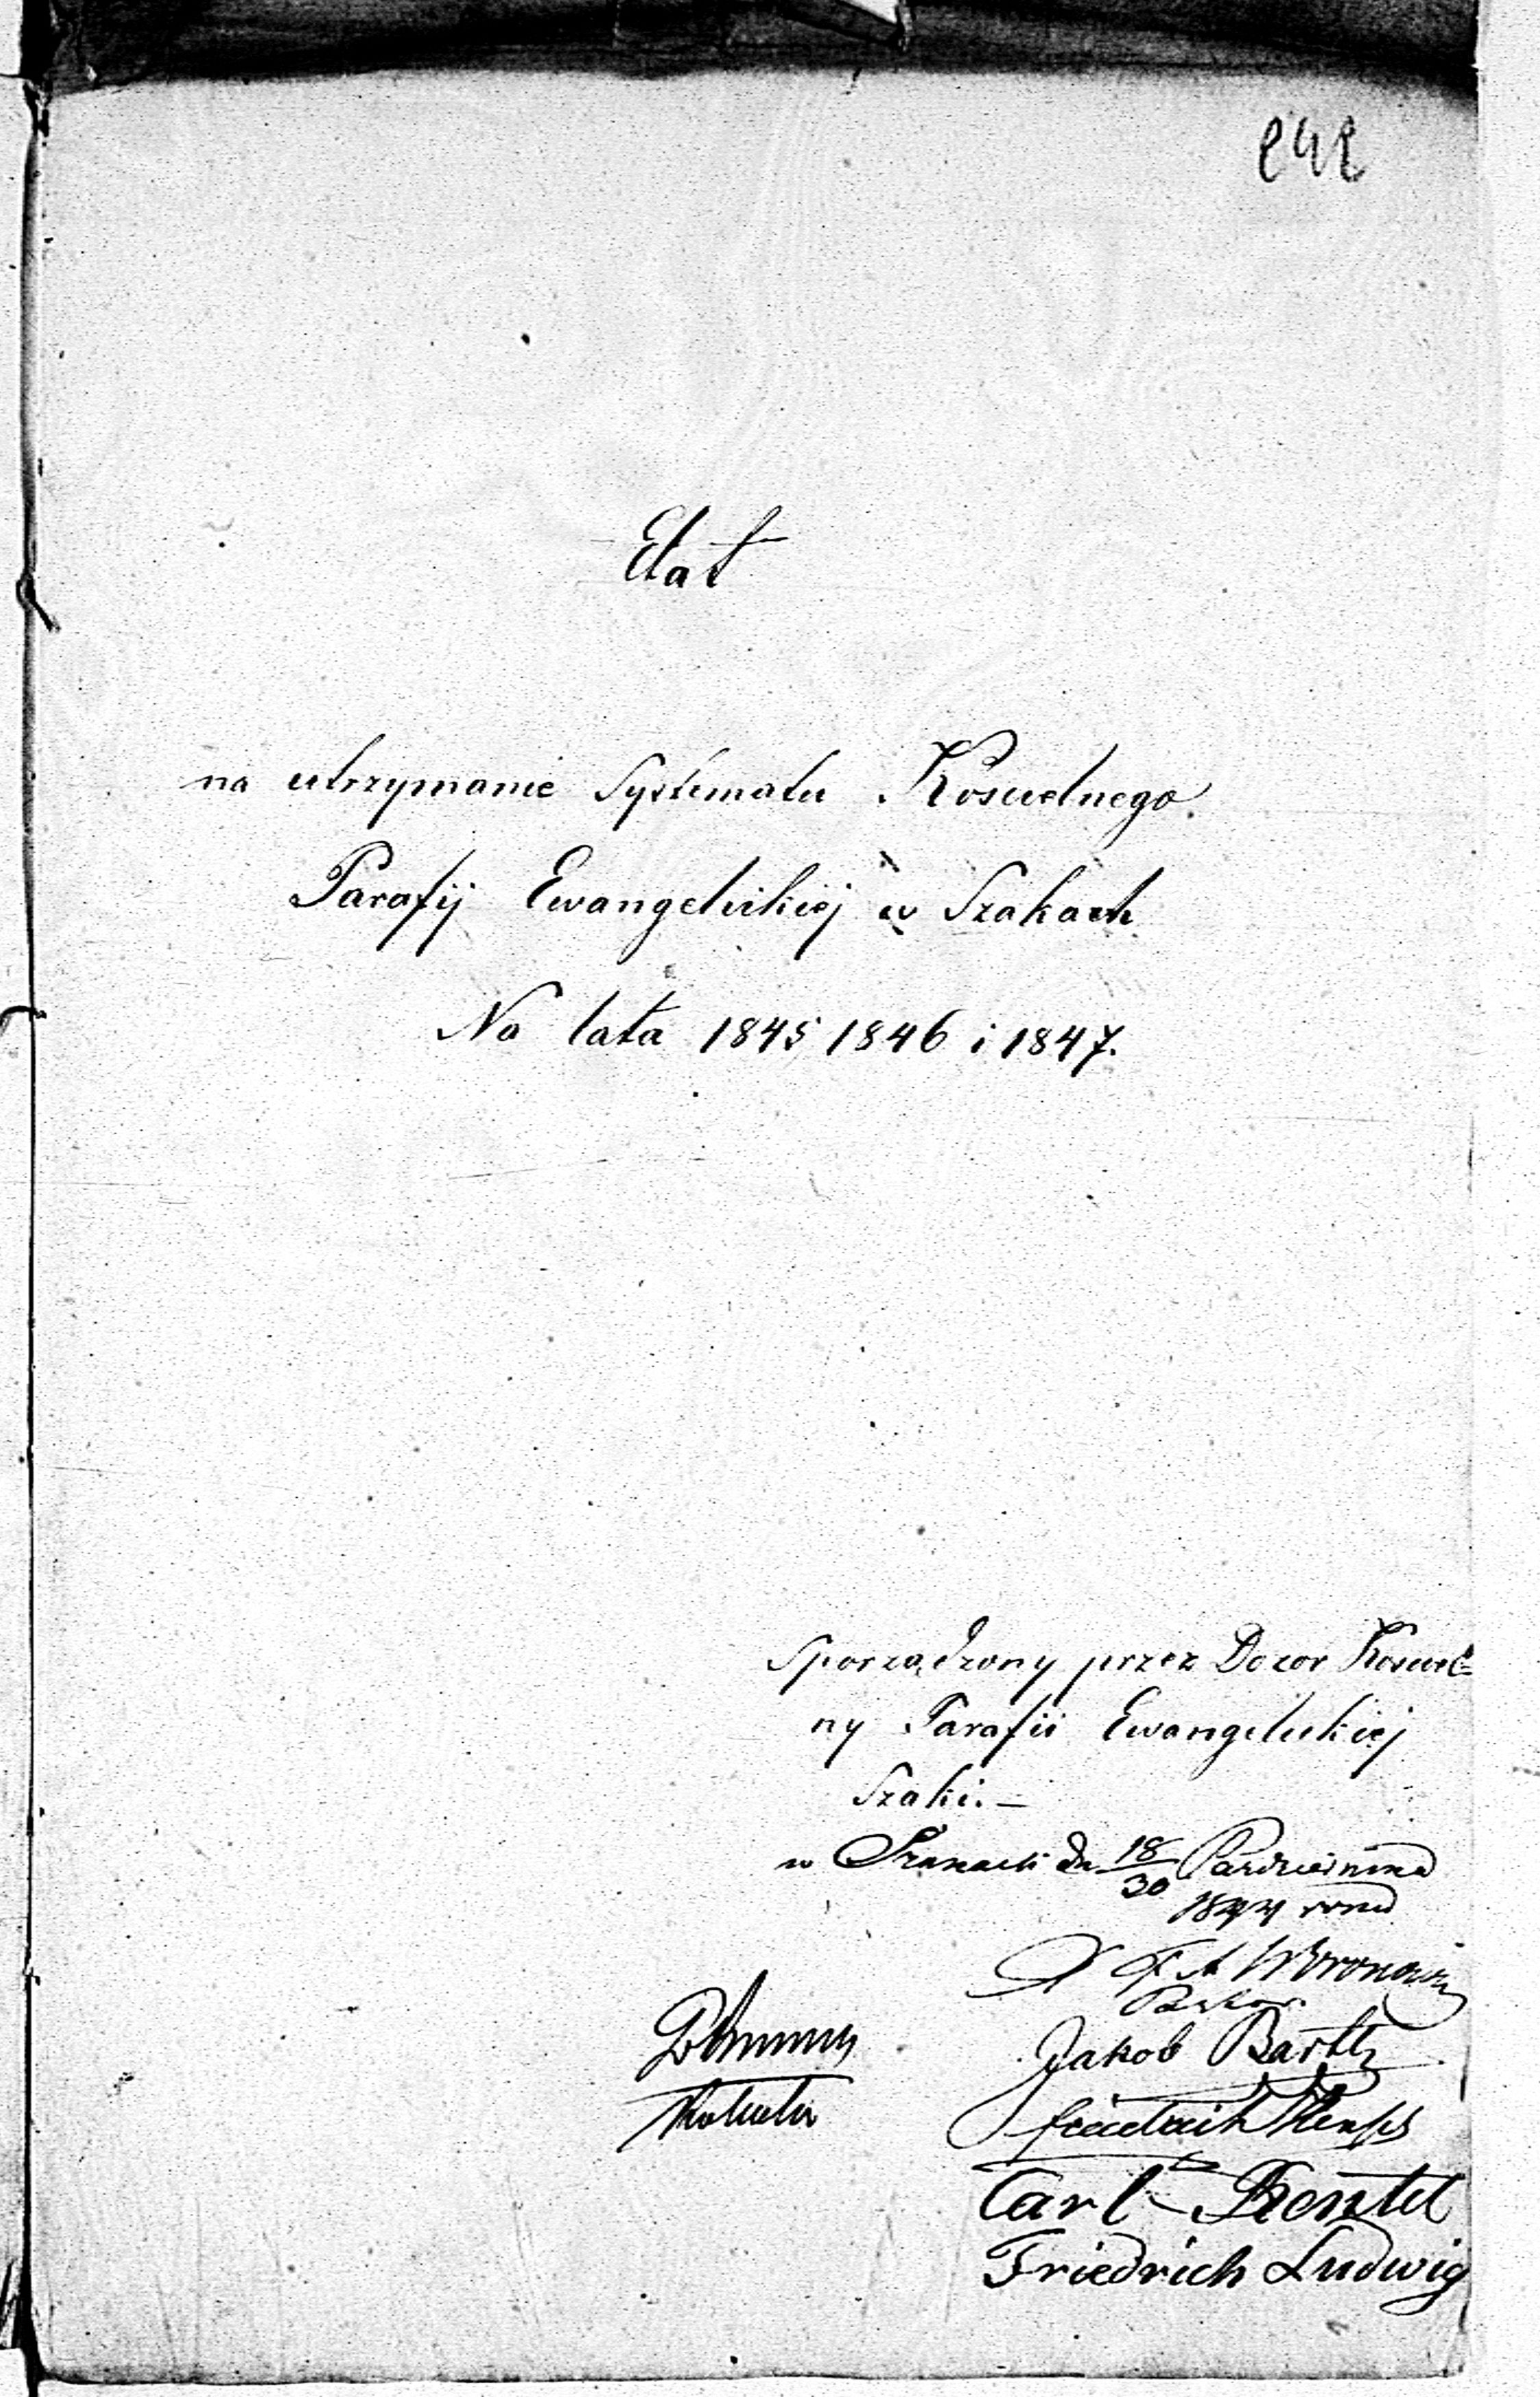 242
Etat
na utrzymanie Systematu Koscielnego
Parafij Ewangelickiej w Szakach
Na lata 1845 1846 i 1847.
Sporządzony przez Dozor Kosciel=
ny Parafii Ewangelickiej
Szaki. —
w Szakach dn 18/30 Pazdziernika
1844 roku
X F A Woronowicz
Pastor
Jakob Bartt
Friedrich
Carl
Friedrich Ludwig